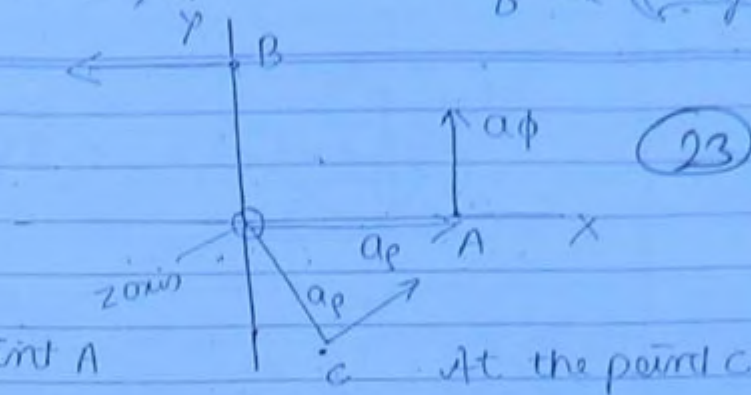 Y
B
aϕ
23
aρ A X
z axis
aρ
int A
C At the point C